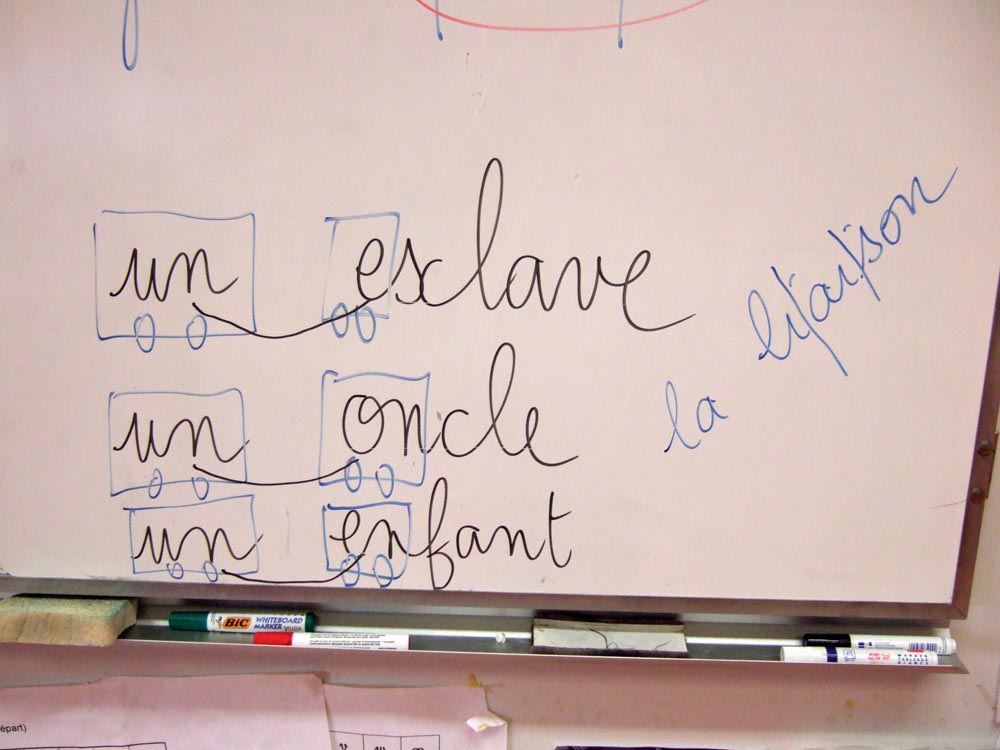 un esclave
un oncle
un enfant
la li/ai/son
BIC WHITEBOARD
MARKER
épart)